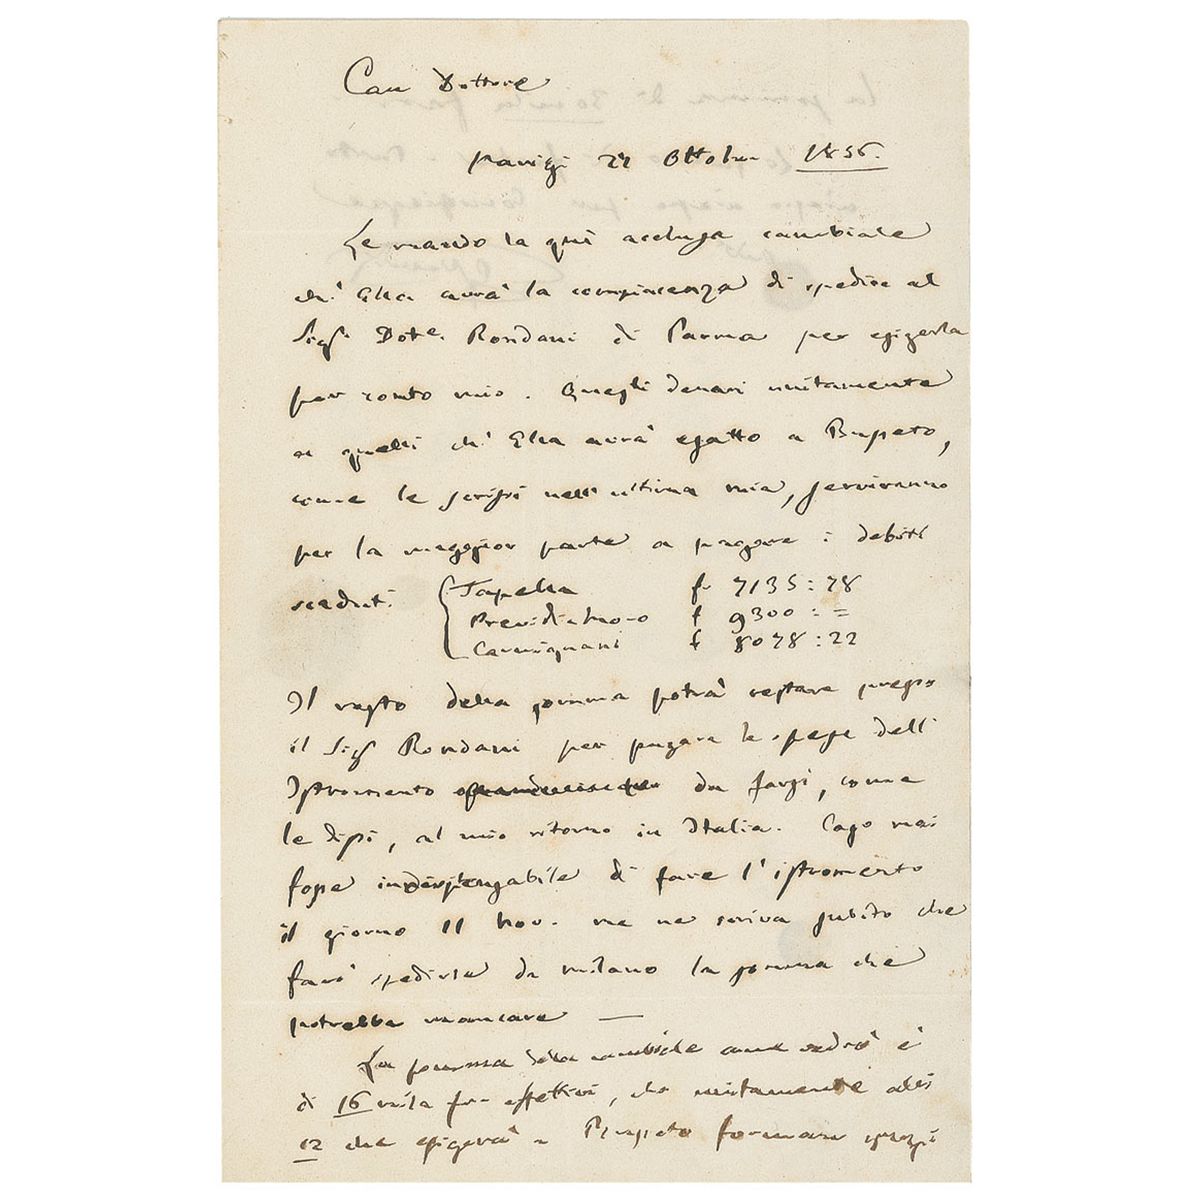 Caro Dottore
Parigi 29 Ottobre 1856.
Le mando la quì acclusa cambiale
ch' Ella avrà la compiacenza di spedire al
Sigr Dotre. Rondani di Parma per esigerla
per conto mio. Quegli denari unitamente
a quelli ch' Ella avrà esatto a Busseto,
come le scrissi nell'ultima mia, serviranno
per la maggior parte a pagare i debiti
scaduti. Tapella fr 7135:78
f 9300:=
Carmignani f 8078:22
Il resto della somma potrà restare presso
il Sigr Rondani per pagare le spese dell'
Istromento da farsi, come
le dissi, al mio ritorno in Italia. Caso mai
fosse indispensabile di fare l'istromento
il giorno 11 Nov. me ne scriva subito che
farò spedirle da Milano la somma che
potrebbe mancare —
La somma della cambiale come vedrà è
di 16 mila fr. effettivi, che unitamente alli
12 che esigerà a Busseto formano quasi